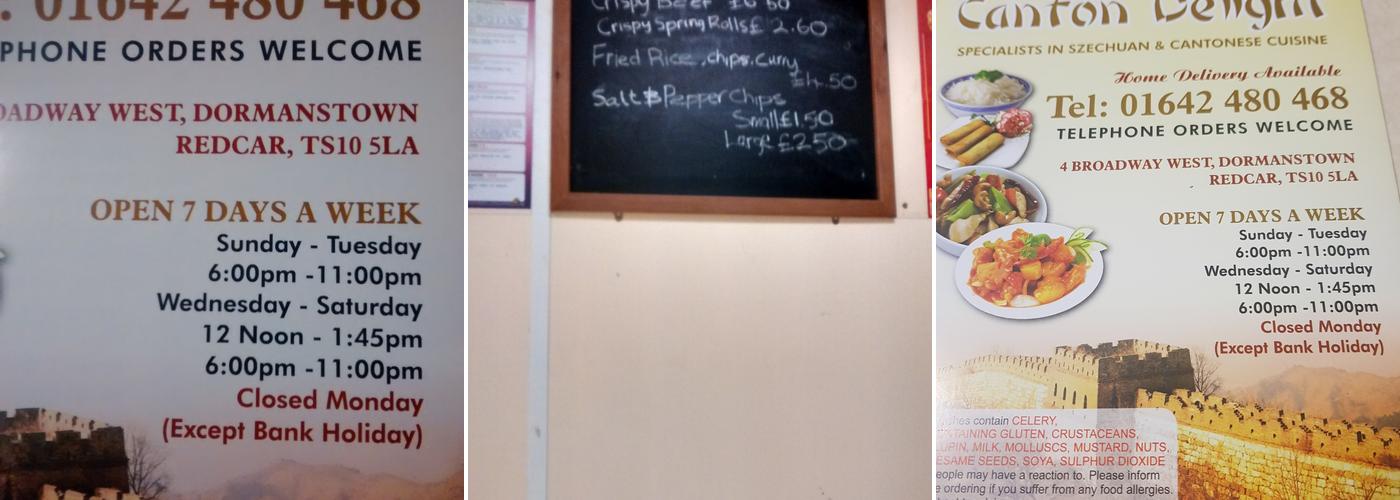 : 01642 480 468
PHONE ORDERS WELCOME
OADWAY WEST, DORMANSTOWN
REDCAR, TS10 5LA
OPEN 7 DAYS A WEEK
Sunday - Tuesday
6:00pm -11:00pm
Wednesday - Saturday
12 Noon - 1:45pm
6:00pm -11:00pm
Closed Monday
(Except Bank Holiday)
Crispy Beef £6 50
Crispy Spring Rolls £ 2.60
Fried Rice, chips, curry
£4.50
Salt & Pepper Chips
Small £1.50
Large £2.50
Canton Delight
SPECIALISTS IN SZECHUAN & CANTONESE CUISINE
Home Delivery Available
Tel: 01642 480 468
TELEPHONE ORDERS WELCOME
4 BROADWAY WEST, DORMANSTOWN
REDCAR, TS10 5LA
OPEN 7 DAYS A WEEK
Sunday - Tuesday
6:00pm -11:00pm
Wednesday - Saturday
12 Noon - 1:45pm
6:00pm -11:00pm
Closed Monday
(Except Bank Holiday)
hes contain CELERY,
NTAINING GLUTEN, CRUSTACEANS,
LUPIN, MILK, MOLLUSCS, MUSTARD, NUTS,
ESAME SEEDS, SOYA, SULPHUR DIOXIDE
eople may have a reaction to. Please inform
e ordering if you suffer from any food allergies.